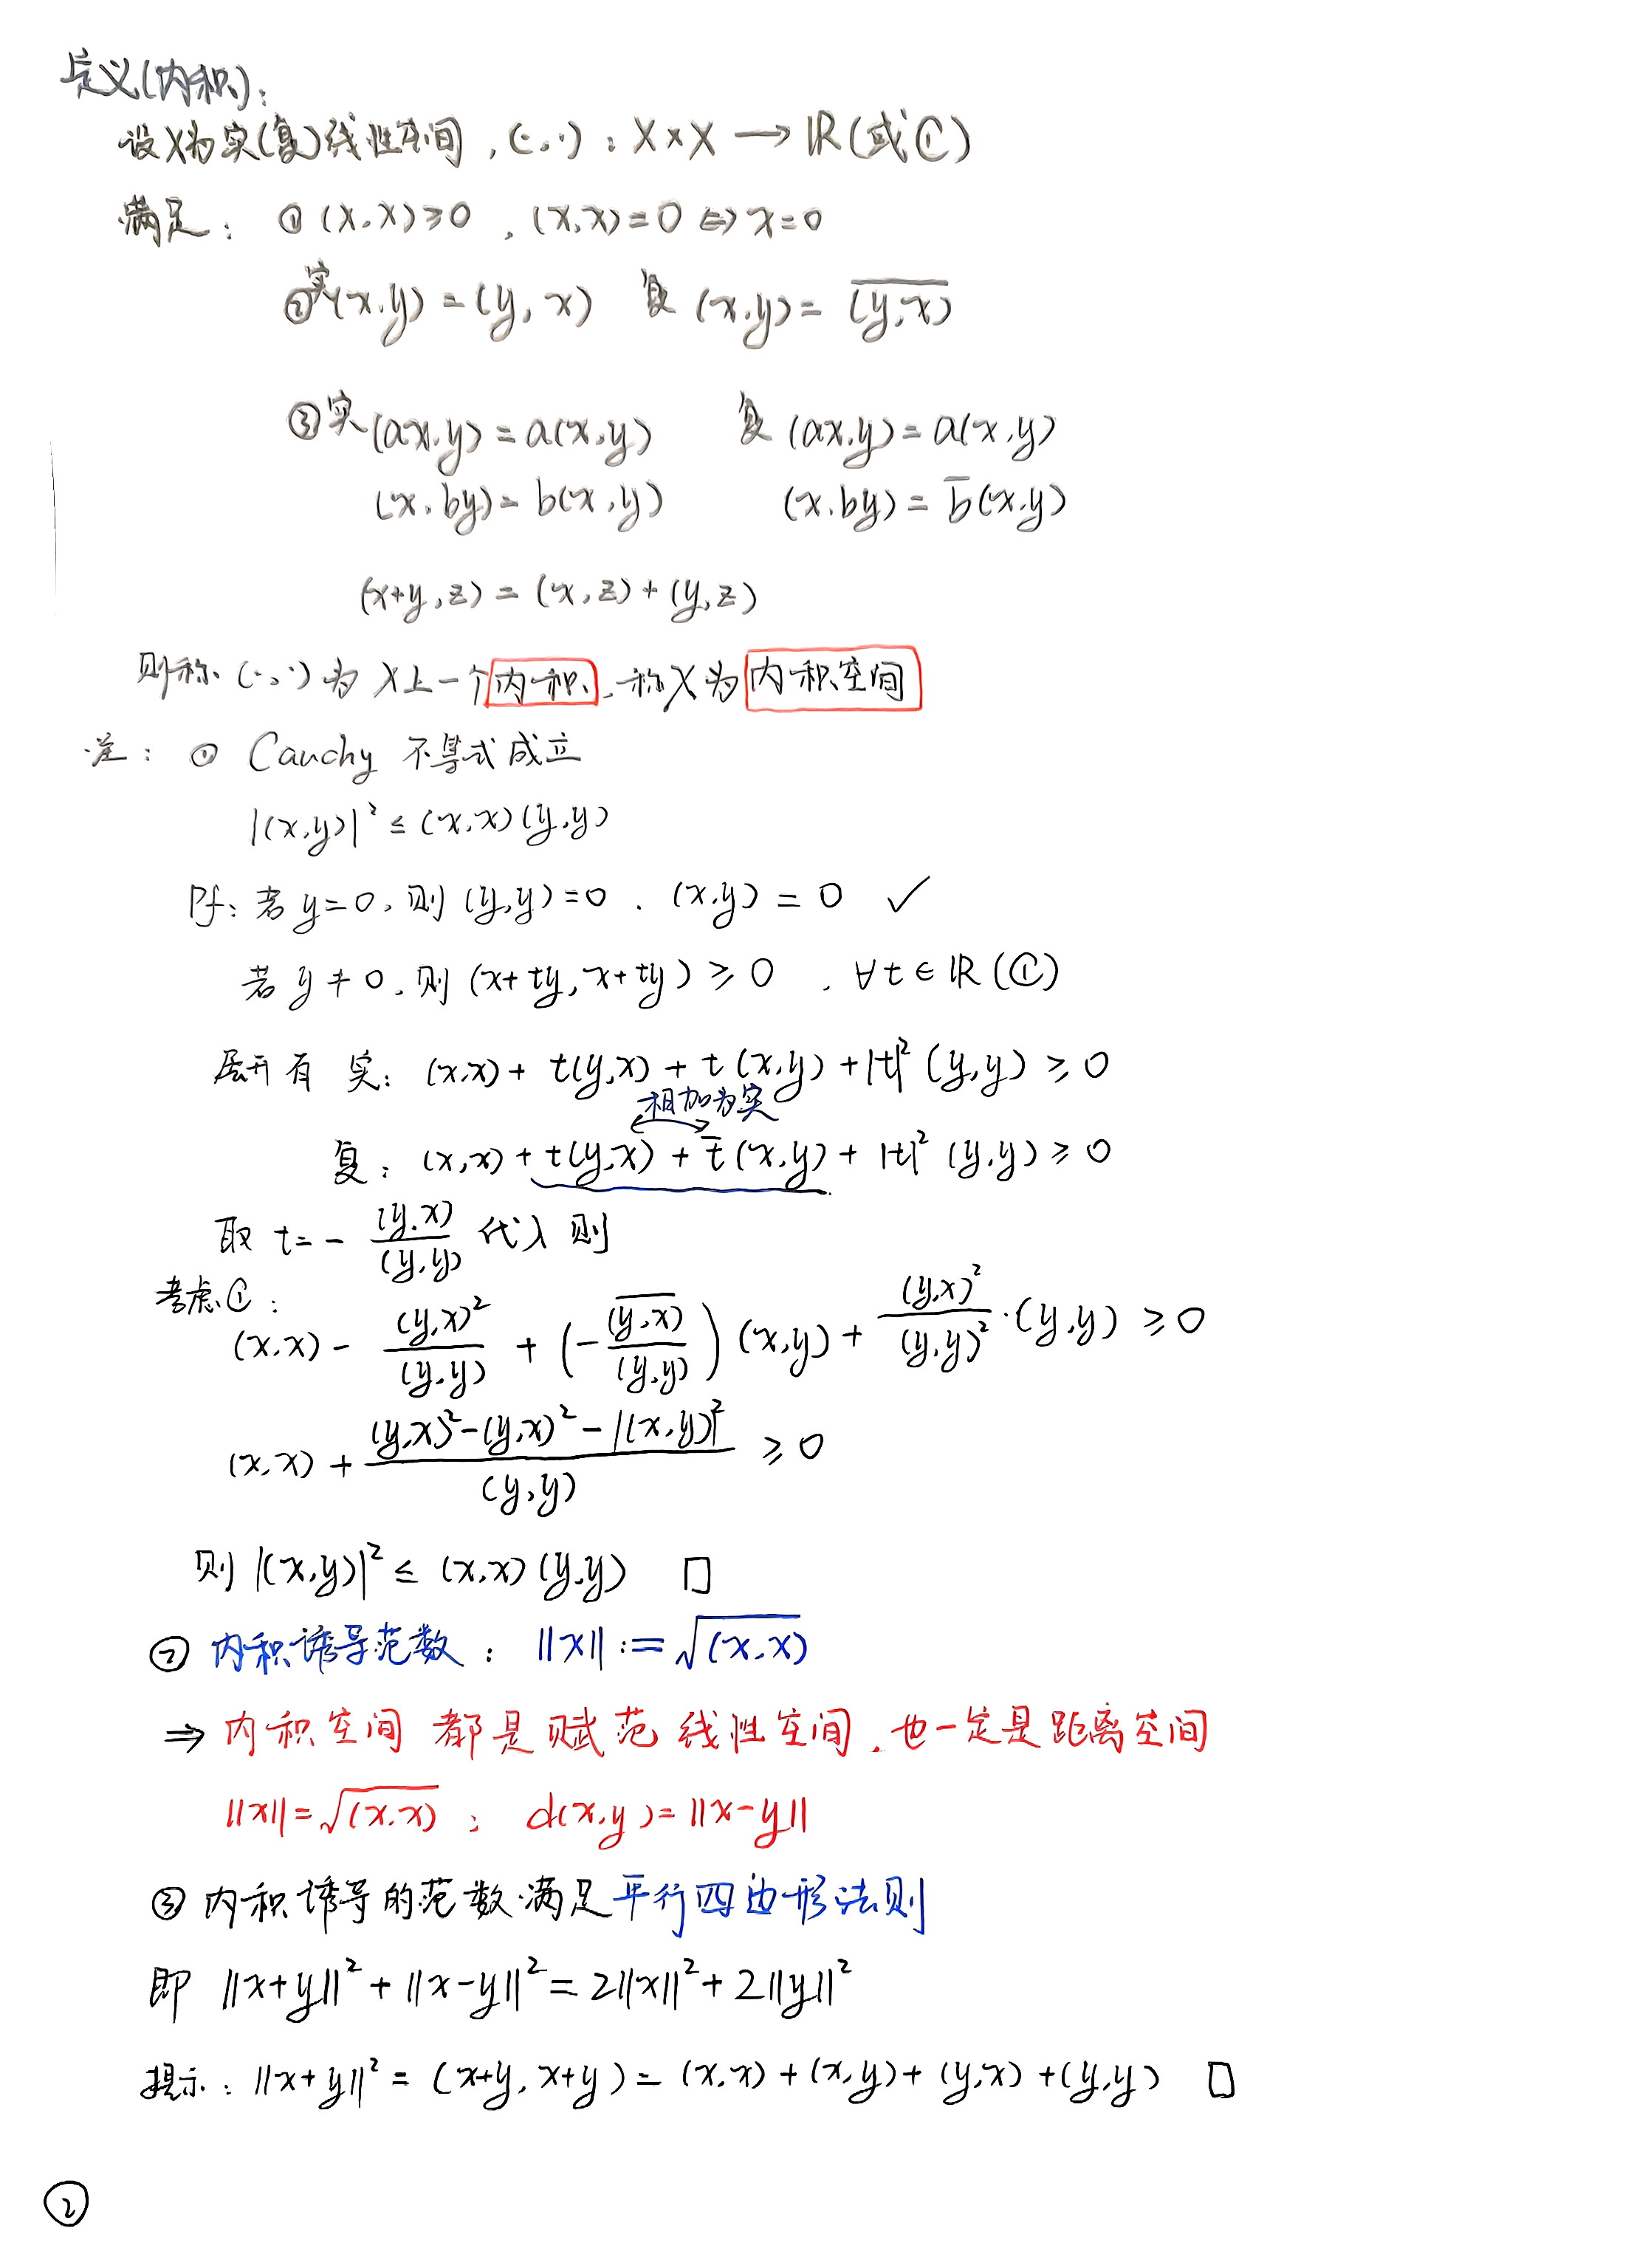 定义(内积):
设X为实(复)线性空间, (·,·): X×X → ℝ(或ℂ)
满足: ① (x,x)≥0, (x,x)=0 ⇔ x=0
②实(x,y)=(y,x) 复 (x,y)=\overline{(y,x)}
③实(ax,y)=a(x,y) 复(ax,y)=a(x,y)
(x,by)=b(x,y) (x,by)=\overline{b}(x,y)
(x+y,z)=(x,z)+(y,z)
则称 (·,·)为 X上一个内积, 称X为内积空间
注: ① Cauchy 不等式成立
|(x,y)|² ≤ (x,x)(y,y)
Pf: 若y=0, 则(y,y)=0, (x,y)=0 ✓
若y≠0, 则(x+ty, x+ty)≥0, ∀t∈ℝ(ℂ)
展开有 实: (x,x)+t(y,x)+t(x,y)+|t|²(y,y)≥0
相加为实
复: (x,x)+t(y,x)+\overline{t}(x,y)+|t|²(y,y)≥0
取 t=-\frac{(y,x)}{(y,y)} 代入则
考虑ℂ:
(x,x)-\frac{(y,x)²}{(y,y)}+(-\frac{\overline{(y,x)}}{(y,y)})(x,y)+\frac{(y,x)²}{(y,y)²}·(y,y)≥0
(x,x)+\frac{(y,x)²-(y,x)²-|(x,y)|²}{(y,y)}≥0
则|(x,y)|² ≤ (x,x)(y,y) □
② 内积诱导范数: ||x||:=√(x,x)
⇒ 内积空间 都是赋范线性空间, 也一定是距离空间
||x||=√(x,x); d(x,y)=||x-y||
③ 内积诱导的范数满足平行四边形法则
即 ||x+y||²+||x-y||²=2||x||²+2||y||²
提示: ||x+y||²=(x+y,x+y)=(x,x)+(x,y)+(y,x)+(y,y) □
②